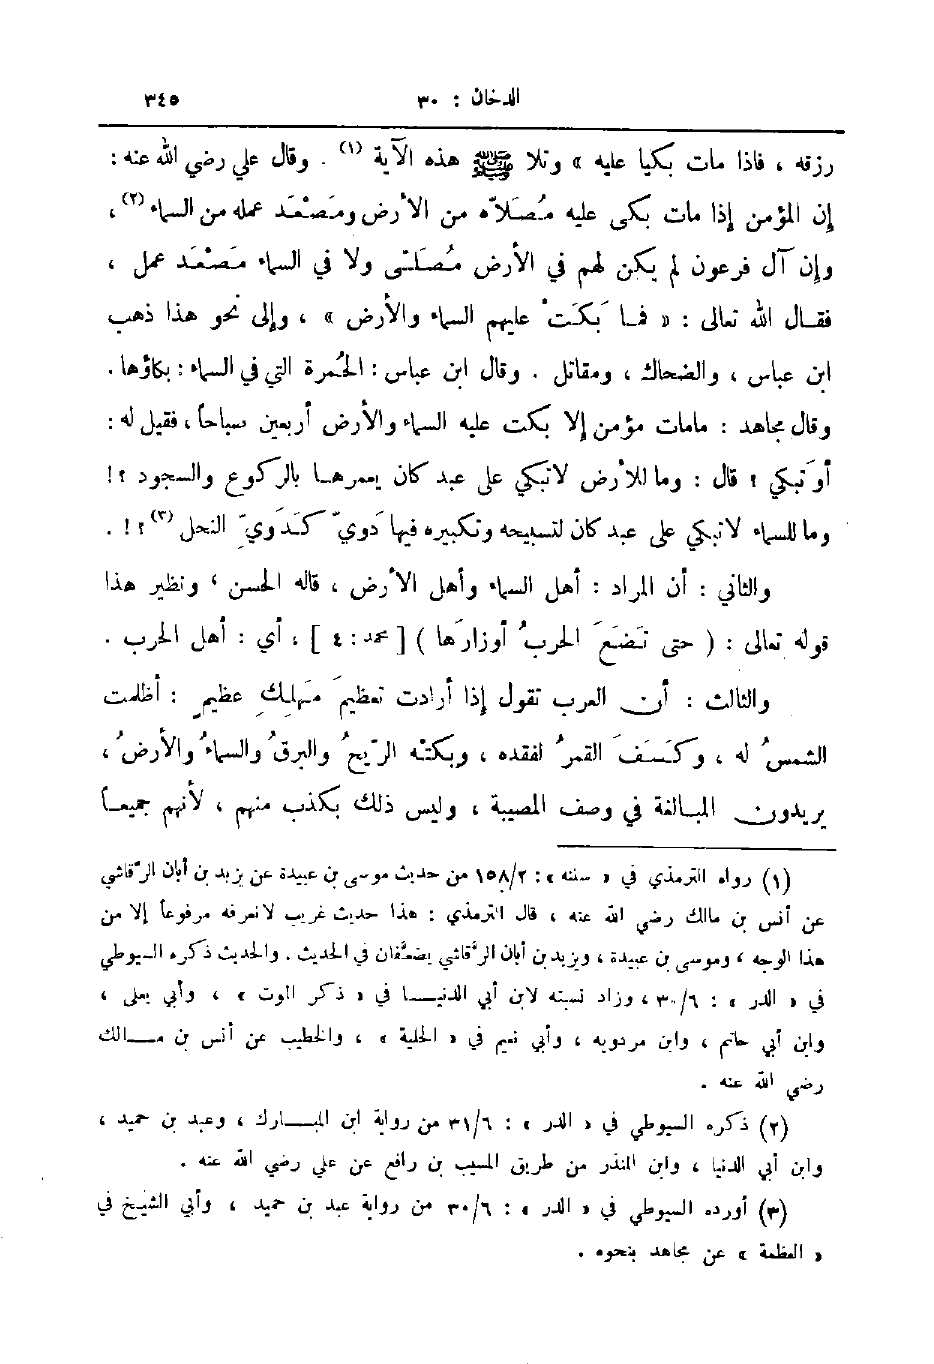 الدخان : ٣٠ ٣٤٥
رزقه ، فاذا مات بكيا عليه » وتلا ﷺ هذه الآية (١) . وقال علي رضي الله عنه :
إن المؤمن إذا مات بكى عليه مُصَلاَّه من الأرض ومَصْعَد عمله من السماء (٢) ،
وإن آل فرعون لم يكن لهم في الأرض مُصَلّى ولا في السماء مَصْعَد عمل ،
فقال الله تعالى : « فما بَكَتْ عليهم السماء والأرض » ، وإلى نحو هذا ذهب
ابن عباس ، والضحاك ، ومقاتل . وقال ابن عباس : الحُمرة التي في السماء : بكاؤها .
وقال مجاهد : مامات مؤمن إلا بكت عليه السماء والأرض أربعين صباحاً ، فقيل له :
أوَتبكي ؟ قال : وما للأرض لاتبكي على عبد كان يعمرها بالركوع والسجود ؟!
وما للسماء لاتبكي على عبد كان لتسبيحه وتكبيره فيها دَويّ كَدَويِّ النحل (٣) ؟! .
والثاني : أن المراد : أهل السماء وأهل الأرض ، قاله الحسن ، ونظير هذا
قوله تعالى : ( حتى تَضَعَ الحربُ أوزارَها ) [ محمد : ٤ ] ، أي : أهل الحرب .
والثالث : أن العرب تقول إذا أرادت تعظيمَ مَهلِكِ عظيمٍ : أظلمت
الشمسُ له ، وكَسَفَ القمرُ لفقده ، وبكتْه الرّيحُ والبرقُ والسماءُ والأرضُ ،
يريدون المبالغة في وصف المصيبة ، وليس ذلك بكذب منهم ، لأنهم جميعاً
(١) رواه الترمذي في « سننه » : ١٥٨/٢ من حديث موسى بن عبيدة عن يزيد بن أبان الرَّقاشي
عن أنس بن مالك رضي الله عنه ، قال الترمذي : هذا حديث غريب لانعرفه مرفوعاً إلا من
هذا الوجه ، وموسى بن عبيدة ، ويزيد بن أبان الرَّقاشي يضعَّفان في الحديث . والحديث ذكره السيوطي
في « الدر » : ٣٠/٦ ، وزاد نسبته لابن أبي الدنيا في « ذكر الموت » ، وأبي يعلى ،
وابن أبي حاتم ، وابن مردويه ، وأبي نعيم في « الحلية » ، والخطيب عن أنس بن مالك
رضي الله عنه .
(٢) ذكره السيوطي في « الدر » : ٣١/٦ من رواية ابن المبارك ، وعبد بن حميد ،
وابن أبي الدنيا ، وابن المنذر من طريق المسيب بن رافع عن علي رضي الله عنه .
(٣) أورده السيوطي في « الدر » : ٣٠/٦ من رواية عبد بن حميد ، وأبي الشيخ في
« العظمة » عن مجاهد بنحوه .